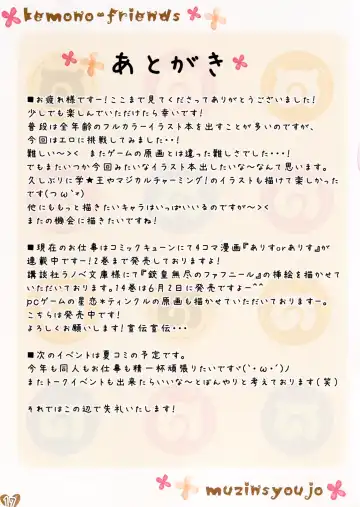 kemono-friends
あとがき
■お疲れ様ですー!ここまで見てくださってありがとうございました!
少しでも楽しんでいただけたら幸いです!
普段は全年齢のフルカラーイラスト本を出すことが多いのですが、
今回はエロに挑戦してみました・・!
難しい〜><　またゲームの原画とは違った難しさでした・・・!
でもまたいつか今回みたいなイラスト本出したいな〜なんて思います。
久しぶりに学★王やマジカルチャーミング!のイラストも描けて楽しかった
です(つω`*)
他にももっと描きたいキャラはいっぱいいるのですが〜><
またの機会に描きたいですね!
■現在のお仕事はコミックキューンにて4コマ漫画『ありすorありす』が
連載中ですー!2巻まで発売しておりますよ!
講談社ラノベ文庫様にて『銃皇無尽のファフニール』の挿絵を描かせて
いただいております。14巻は6月2日に発売ですよー^^
pcゲームの星恋*ティンクルの原画も描かせていただいておりますー。
こちらは発売中です!
よろしくお願いします!宣伝宣伝・・・
■次のイベントは夏コミの予定です。
今年も同人もお仕事も精一杯頑張りたいですヾ(`・ω・´)ノ
またトークイベントも出来たらいいな〜とぼんやりと考えております(笑)
それではこの辺で失礼いたします!
17
muzinsyoujo